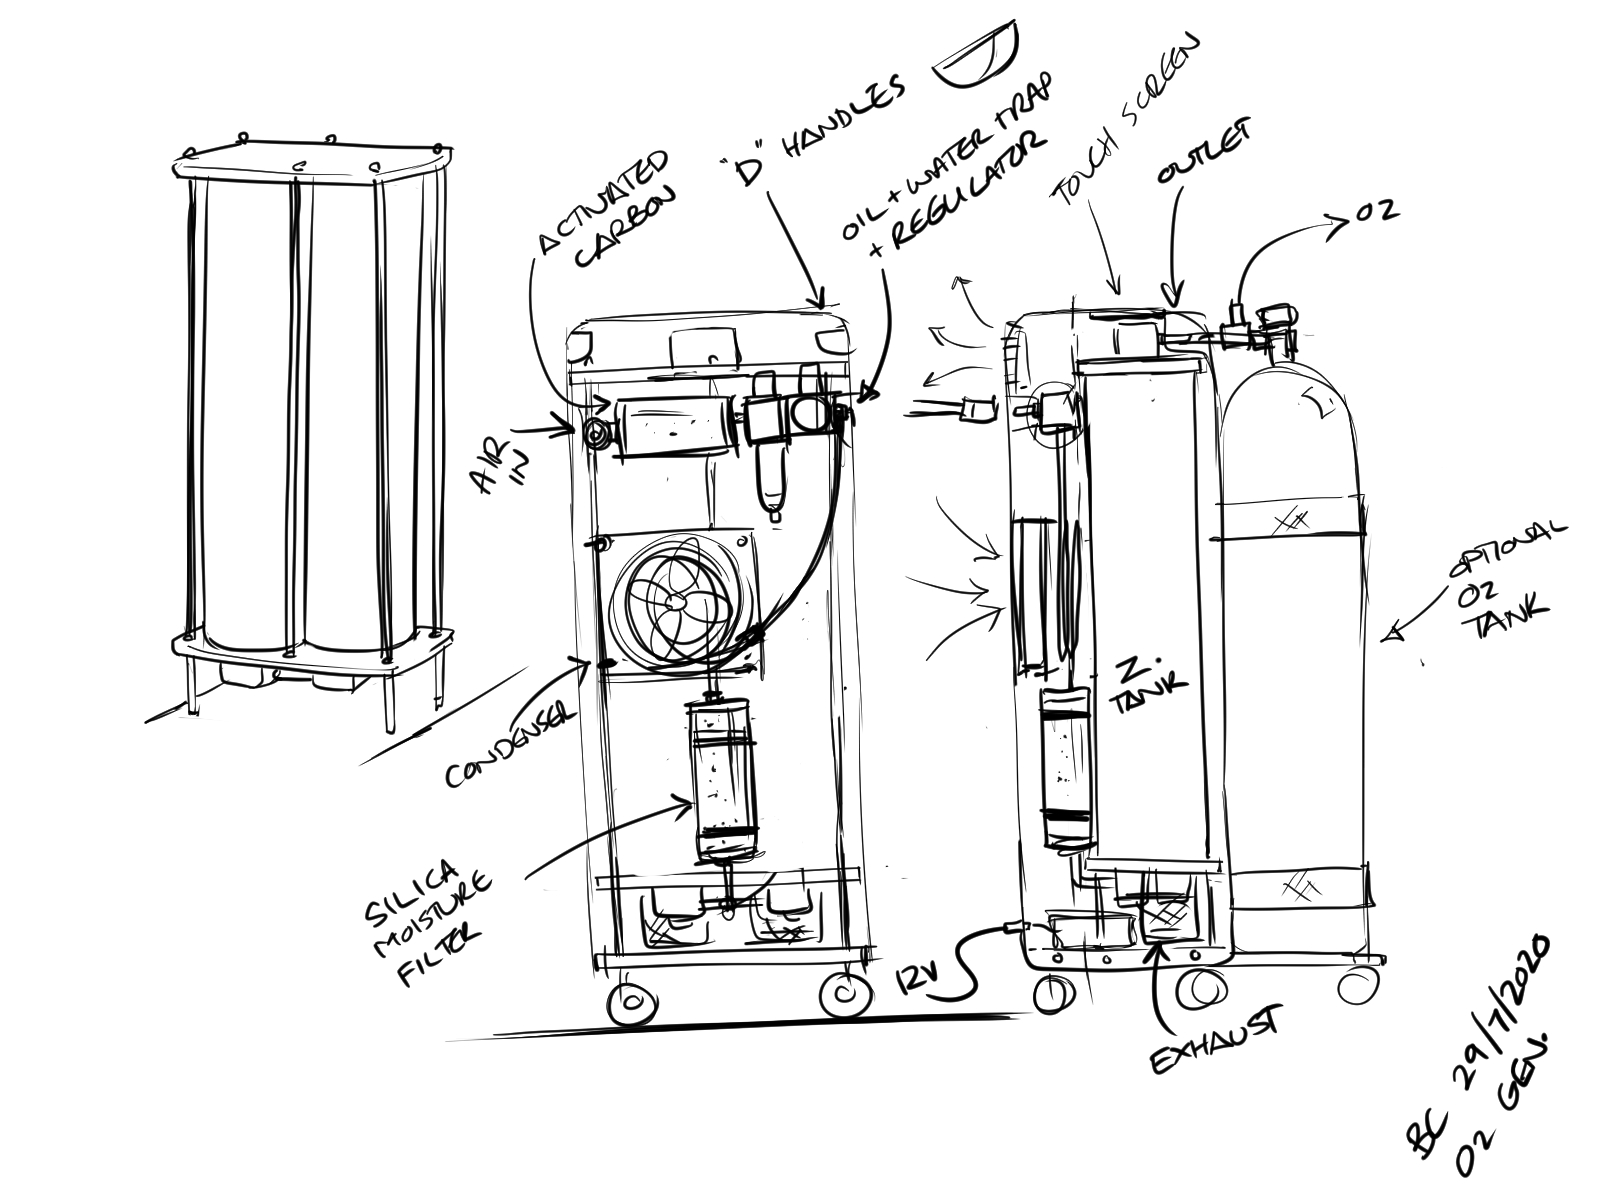 "D" HANDLES
ACTIVATED
CARBON
OIL + WATER TRAP
+ REGULATOR
TOUCH SCREEN
OUTLET
O2
AIR
IN
CONDENSER
SILICA
MOISTURE
FILTER
Z.
TANK
OPTIONAL
O2
TANK
12V
EXHAUST
BC 29/7/2020
O2 GEN.